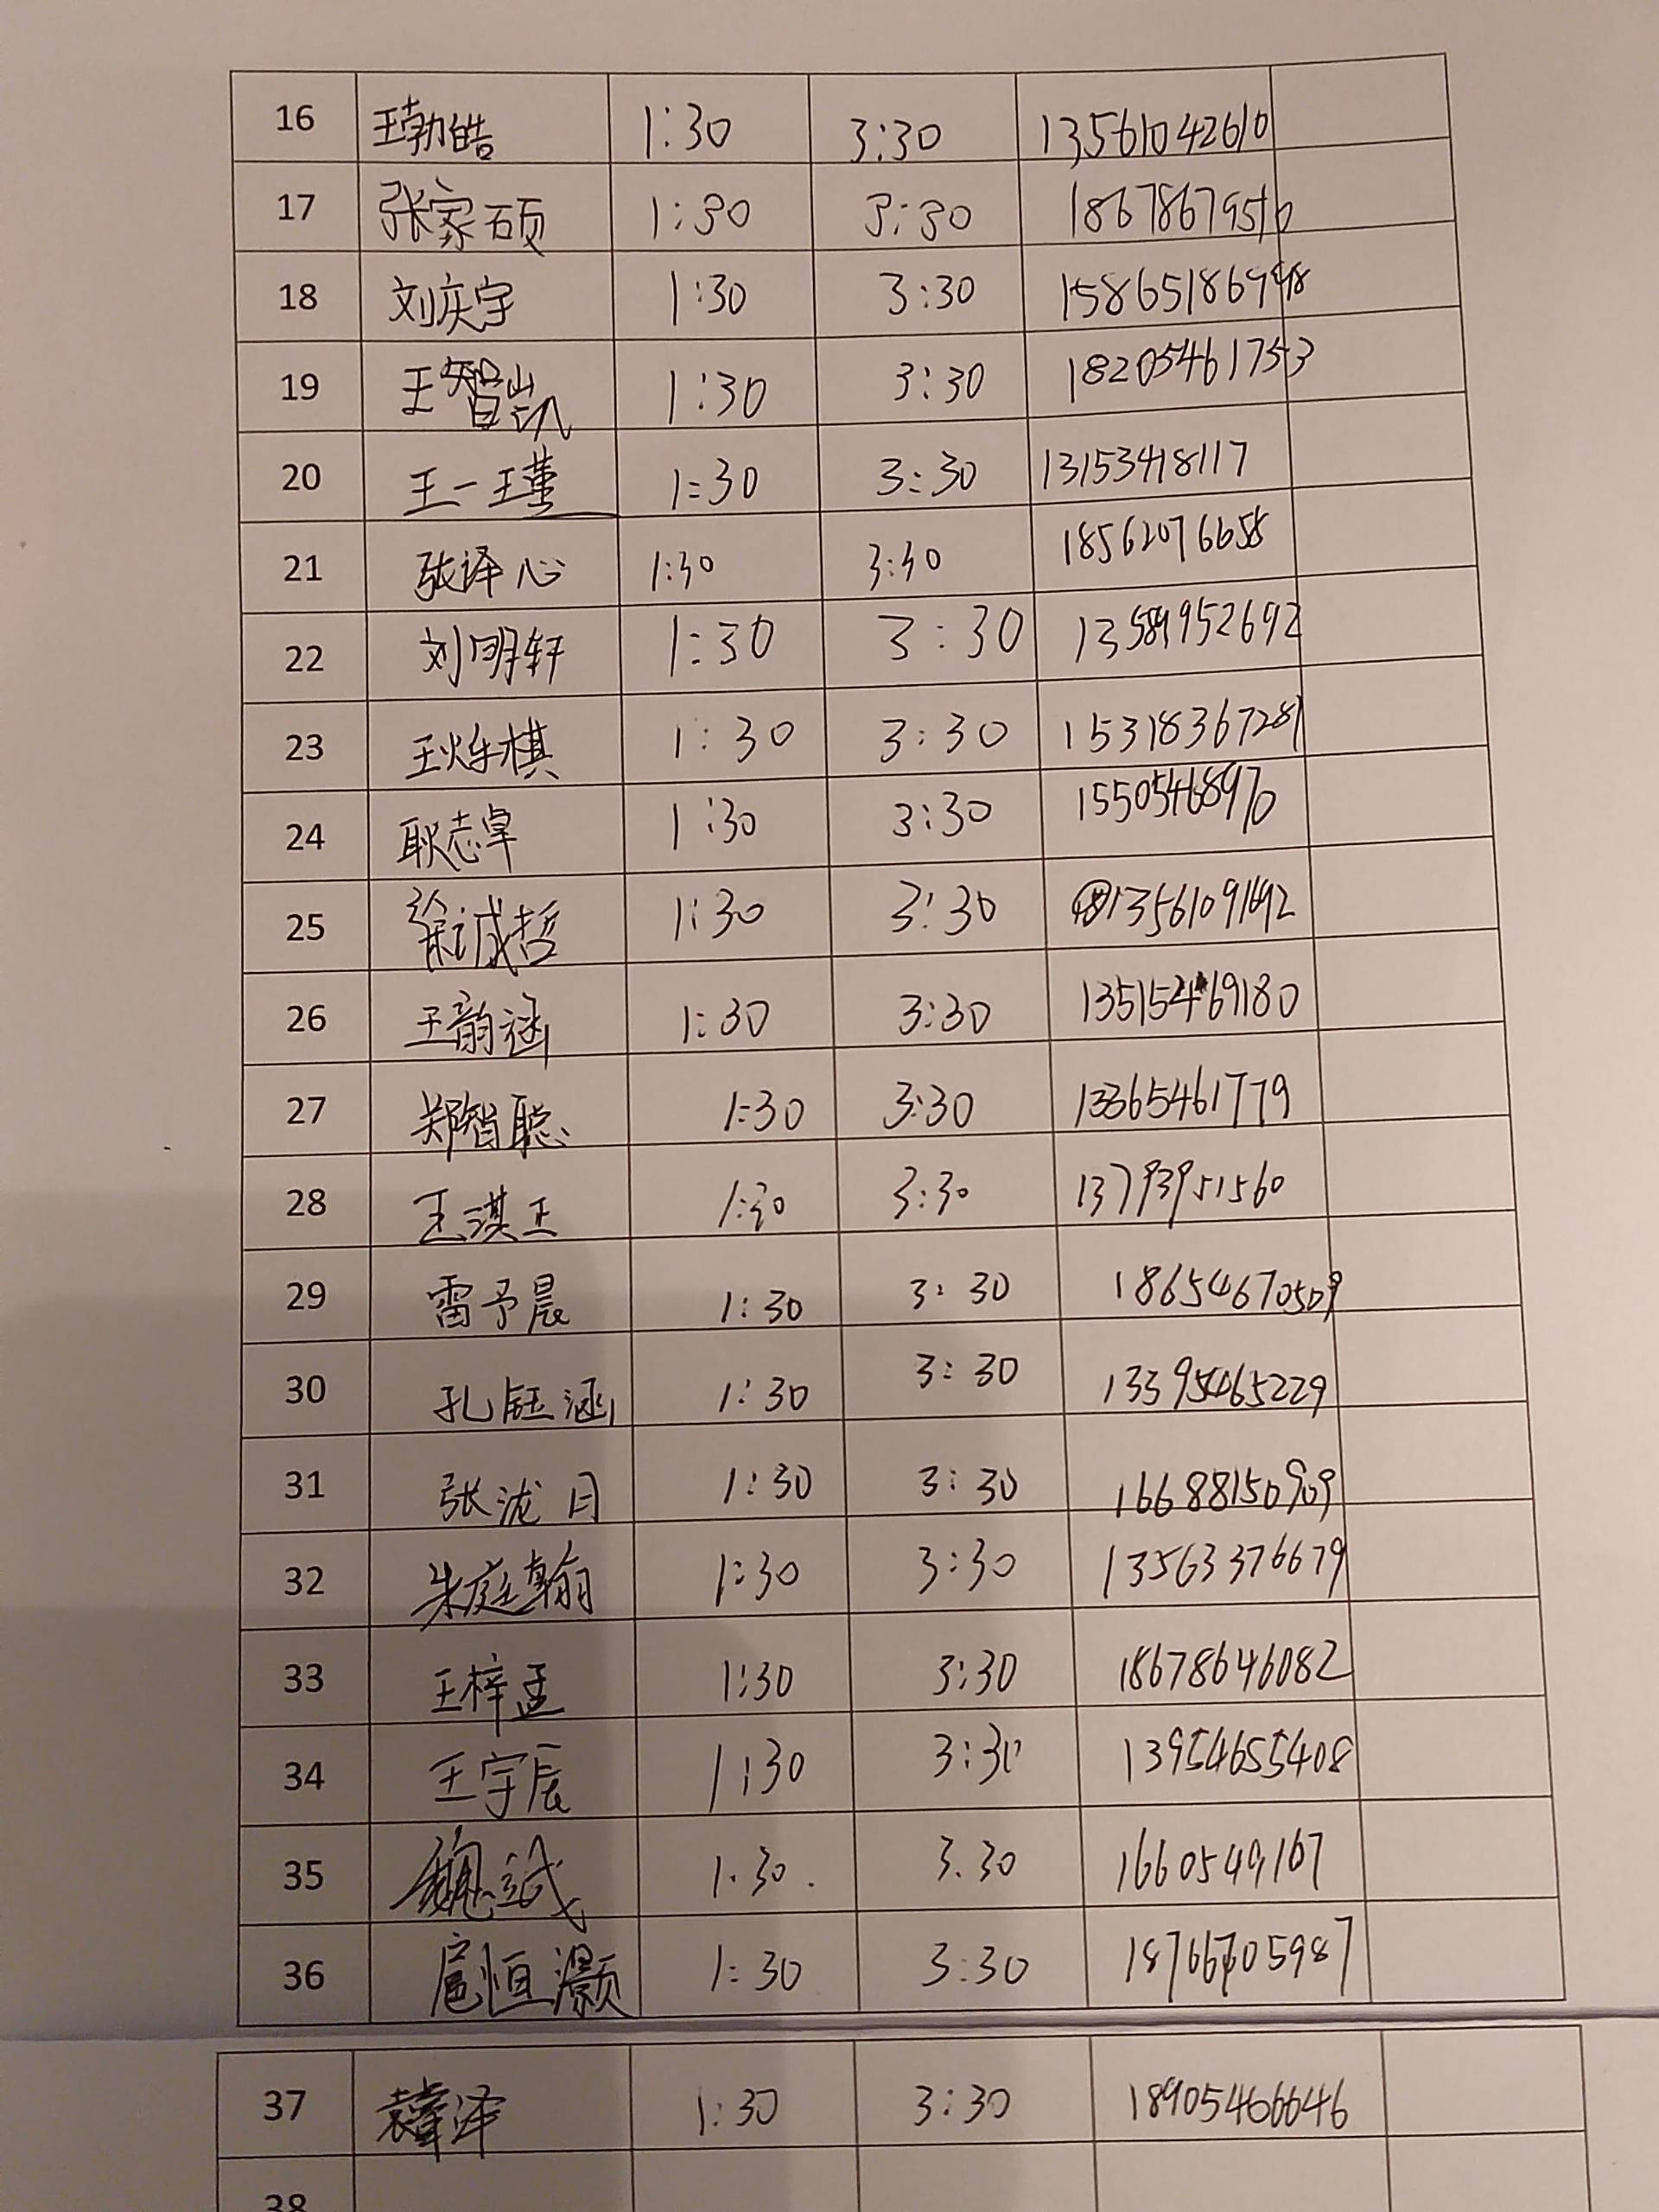 16 王勃皓 1:30 3:30 13561042610
17 张家硕 1:30 3:30 18678679516
18 刘庆宇 1:30 3:30
19 王智凯 1:30 3:30 18205461753
20 王一瑾 1:30 3:30 13153418117
21 张译心 1:30 3:30 18562076658
22 刘明轩 1:30 3:30 13589952692
23 王烨棋 1:30 3:30 15318367289
24 耿志卓 1:30 3:30 15505468970
25 徐诚哲 1:30 3:30
26 王韵涵 1:30 3:30 13515469180
27 郑智聪 1:30 3:30 13365461779
28 王淇正 1:30 3:30 13793951560
29 雷予晨 1:30 3:30 18654670509
30 孔钰涵 1:30 3:30 13395465229
31 张泷月 1:30 3:30 16688150909
32 朱庭翰 1:30 3:30 13563376679
33 王梓孟 1:30 3:30 18678646082
34 王宇辰 1:30 3:30 13954655408
35 1.30. 3.30 1660549167
36 扈恒灏 1:30 3:30 18766705987
37 1:30 3:30 18905466646
38